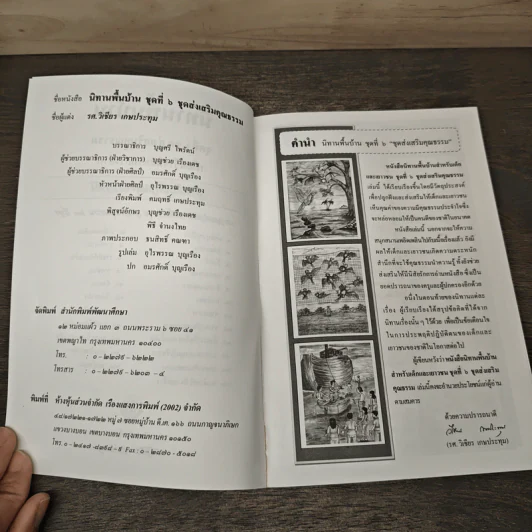 ชื่อหนังสือ นิทานพื้นบ้าน ชุดที่ ๖ ชุดส่งเสริมคุณธรรม
ชื่อผู้แต่ง รศ.วิเชียร เกษประทุม
บรรณาธิการ บุญศรี ไพรัตน์
ผู้ช่วยบรรณาธิการ (ฝ่ายวิชาการ) บุญช่วย เรืองเดช
ผู้ช่วยบรรณาธิการ (ฝ่ายศิลป์) อมรศักดิ์ บุญเรือง
หัวหน้าฝ่ายศิลป์ อุไรพรรณ บุญเรือง
เรียงพิมพ์ คมฤทธิ์ เกษประทุม
พิสูจน์อักษร บุญช่วย เรืองเดช
พิธี จำนงไทย
ภาพประกอบ ธนสิทธิ์ คณฑา
รูปเล่ม อุไรพรรณ บุญเรือง
ปก อมรศักดิ์ บุญเรือง
จัดพิมพ์ สำนักพิมพ์พัฒนาศึกษา
๑๒ หม่อมแผ้ว แยก ๗ ถนนพระราม ๖ ซอย ๔๑
เขตพญาไท กรุงเทพมหานคร ๑๐๔๐๐
โทร.
โทรสาร
พิมพ์ที่ ห้างหุ้นส่วนจำกัด เรืองแสงการพิมพ์ (2002) จำกัด
แขวงบางบอน เขตบางบอน กรุงเทพมหานคร ๑๐๑๕๐
คำนำ นิทานพื้นบ้าน ชุดที่ ๖ "ชุดส่งเสริมคุณธรรม"
หนังสือนิทานพื้นบ้านสำหรับเด็ก
และเยาวชน ชุดที่ ๖ ชุดส่งเสริมคุณธรรม
เล่มนี้ ได้เรียบเรียงขึ้นโดยมีวัตถุประสงค์
เพื่อปลูกฝังและส่งเสริมให้เด็กและเยาวชน
เห็นคุณค่าของความมีคุณธรรมประจำใจซึ่ง
จะหล่อหลอมให้เป็นคนดีของชาติในอนาคต
หนังสือเล่มนี้ นอกจากจะให้ความ
สนุกสนานเพลิดเพลินไปกับเนื้อเรื่องแล้ว ยังมี
ผลให้เด็กและเยาวชนเกิดความตระหนัก
สำนึกที่จะใช้คุณธรรมนำความรู้ ทั้งยังช่วย
ส่งเสริมให้มีนิสัยรักการอ่านหนังสือ ซึ่งเป็น
ยอดปรารถนาของครูและผู้ปกครองอีกด้วย
อนึ่งในตอนท้ายของนิทานแต่ละ
เรื่อง ผู้เรียบเรียงได้สรุปข้อคิดที่ได้จาก
นิทานเรื่องนั้น ๆ ไว้ด้วย เพื่อเป็นข้อเตือนใจ
ในการประพฤติปฏิบัติตนของเด็กและ
เยาวชนของชาติในโอกาสต่อไป
ผู้เขียนหวังว่า หนังสือนิทานพื้นบ้าน
สำหรับเด็กและเยาวชน ชุดที่ ๖ ชุดส่งเสริม
คุณธรรม เล่มนี้คงจะอำนวยประโยชน์แก่ผู้อ่าน
ตามสมควร
ด้วยความปรารถนาดี
(รศ. วิเชียร เกษประทุม)